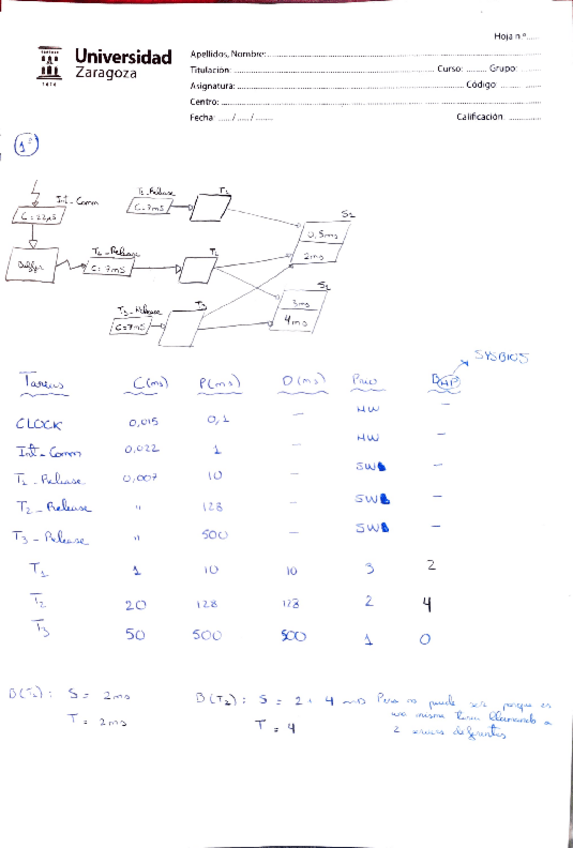 Hoja n.º......
Universidad
Zaragoza
1474
Apellidos, Nombre:
Titulación: Curso: Grupo:
Asignatura: Código:
Centro:
Fecha: ...../...../....... Calificación:
1º
Int_Comm
C=22µs
Buffer
T1_Release
C=7ms
T1
T2_Release
C=7ms
T2
T3_Release
C=7ms
T3
S2
0,5ms
2ms
S1
3ms
4ms
SYSBIOS
Tareas C(ms) P(ms) D(ms) Prio BHP
CLOCK 0,015 0,1 — HW —
Int_Comm 0,022 1 — HW —
T1_Release 0,007 10 — SW —
T2_Release " 128 — SW —
T3_Release " 500 — SW —
T1 1 10 10 3 2
T2 20 128 128 2 4
T3 50 500 500 1 0
B(T1): S = 2ms
T = 2ms
B(T2): S = 2 + 4 → Pero no puede ser porque es
una misma tarea llamando a
T = 4
2 diferentes